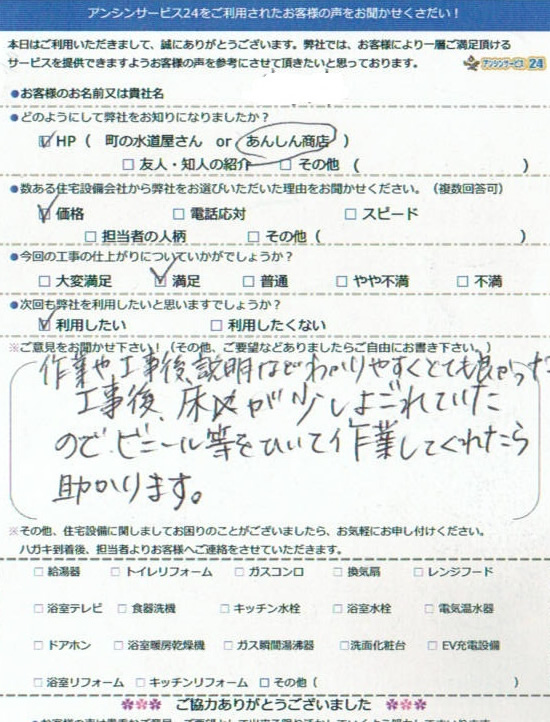 アンシンサービス24をご利用されたお客様の声をお聞かせくさだい!
本日はご利用いただきまして、誠にありがとうございます。弊社では、お客様により一層ご満足頂ける
サービスを提供できますようお客様の声を参考にさせて頂きたいと思っております。
アンシンサービス24
●お客様のお名前又は貴社名
●どのようにして弊社をお知りになりましたか?
☑HP( 町の水道屋さん or あんしん商店 )
□友人・知人の紹介 □その他( )
●数ある住宅設備会社から弊社をお選びいただいた理由をお聞かせください。(複数回答可)
☑価格 □電話応対 □スピード
□担当者の人柄 □その他( )
●今回の工事の仕上がりについていかがでしょうか?
□大変満足 ☑満足 □普通 □やや不満 □不満
●次回も弊社を利用したいと思いますでしょうか?
☑利用したい □利用したくない
※ご意見をお聞かせ下さい!(その他、ご要望などありましたらご自由にお書き下さい。)
作業や工事後、説明などわかりやすくとても良かった
工事後、床が少しよごれていた
のでビニール等をひいて作業してくれたら
助かります。
※その他、住宅設備に関しましてお困りのことがございましたら、お気軽にお申し付けください。
ハガキ到着後、担当者よりお客様へご連絡をさせていただきます。
□給湯器 □トイレリフォーム □ガスコンロ □換気扇 □レンジフード
□浴室テレビ □食器洗機 □キッチン水栓 □浴室水栓 □電気温水器
□ドアホン □浴室暖房乾燥機 □ガス瞬間湯沸器 □洗面化粧台 □EV充電設備
□浴室リフォーム □キッチンリフォーム □その他( )
ご協力ありがとうございました